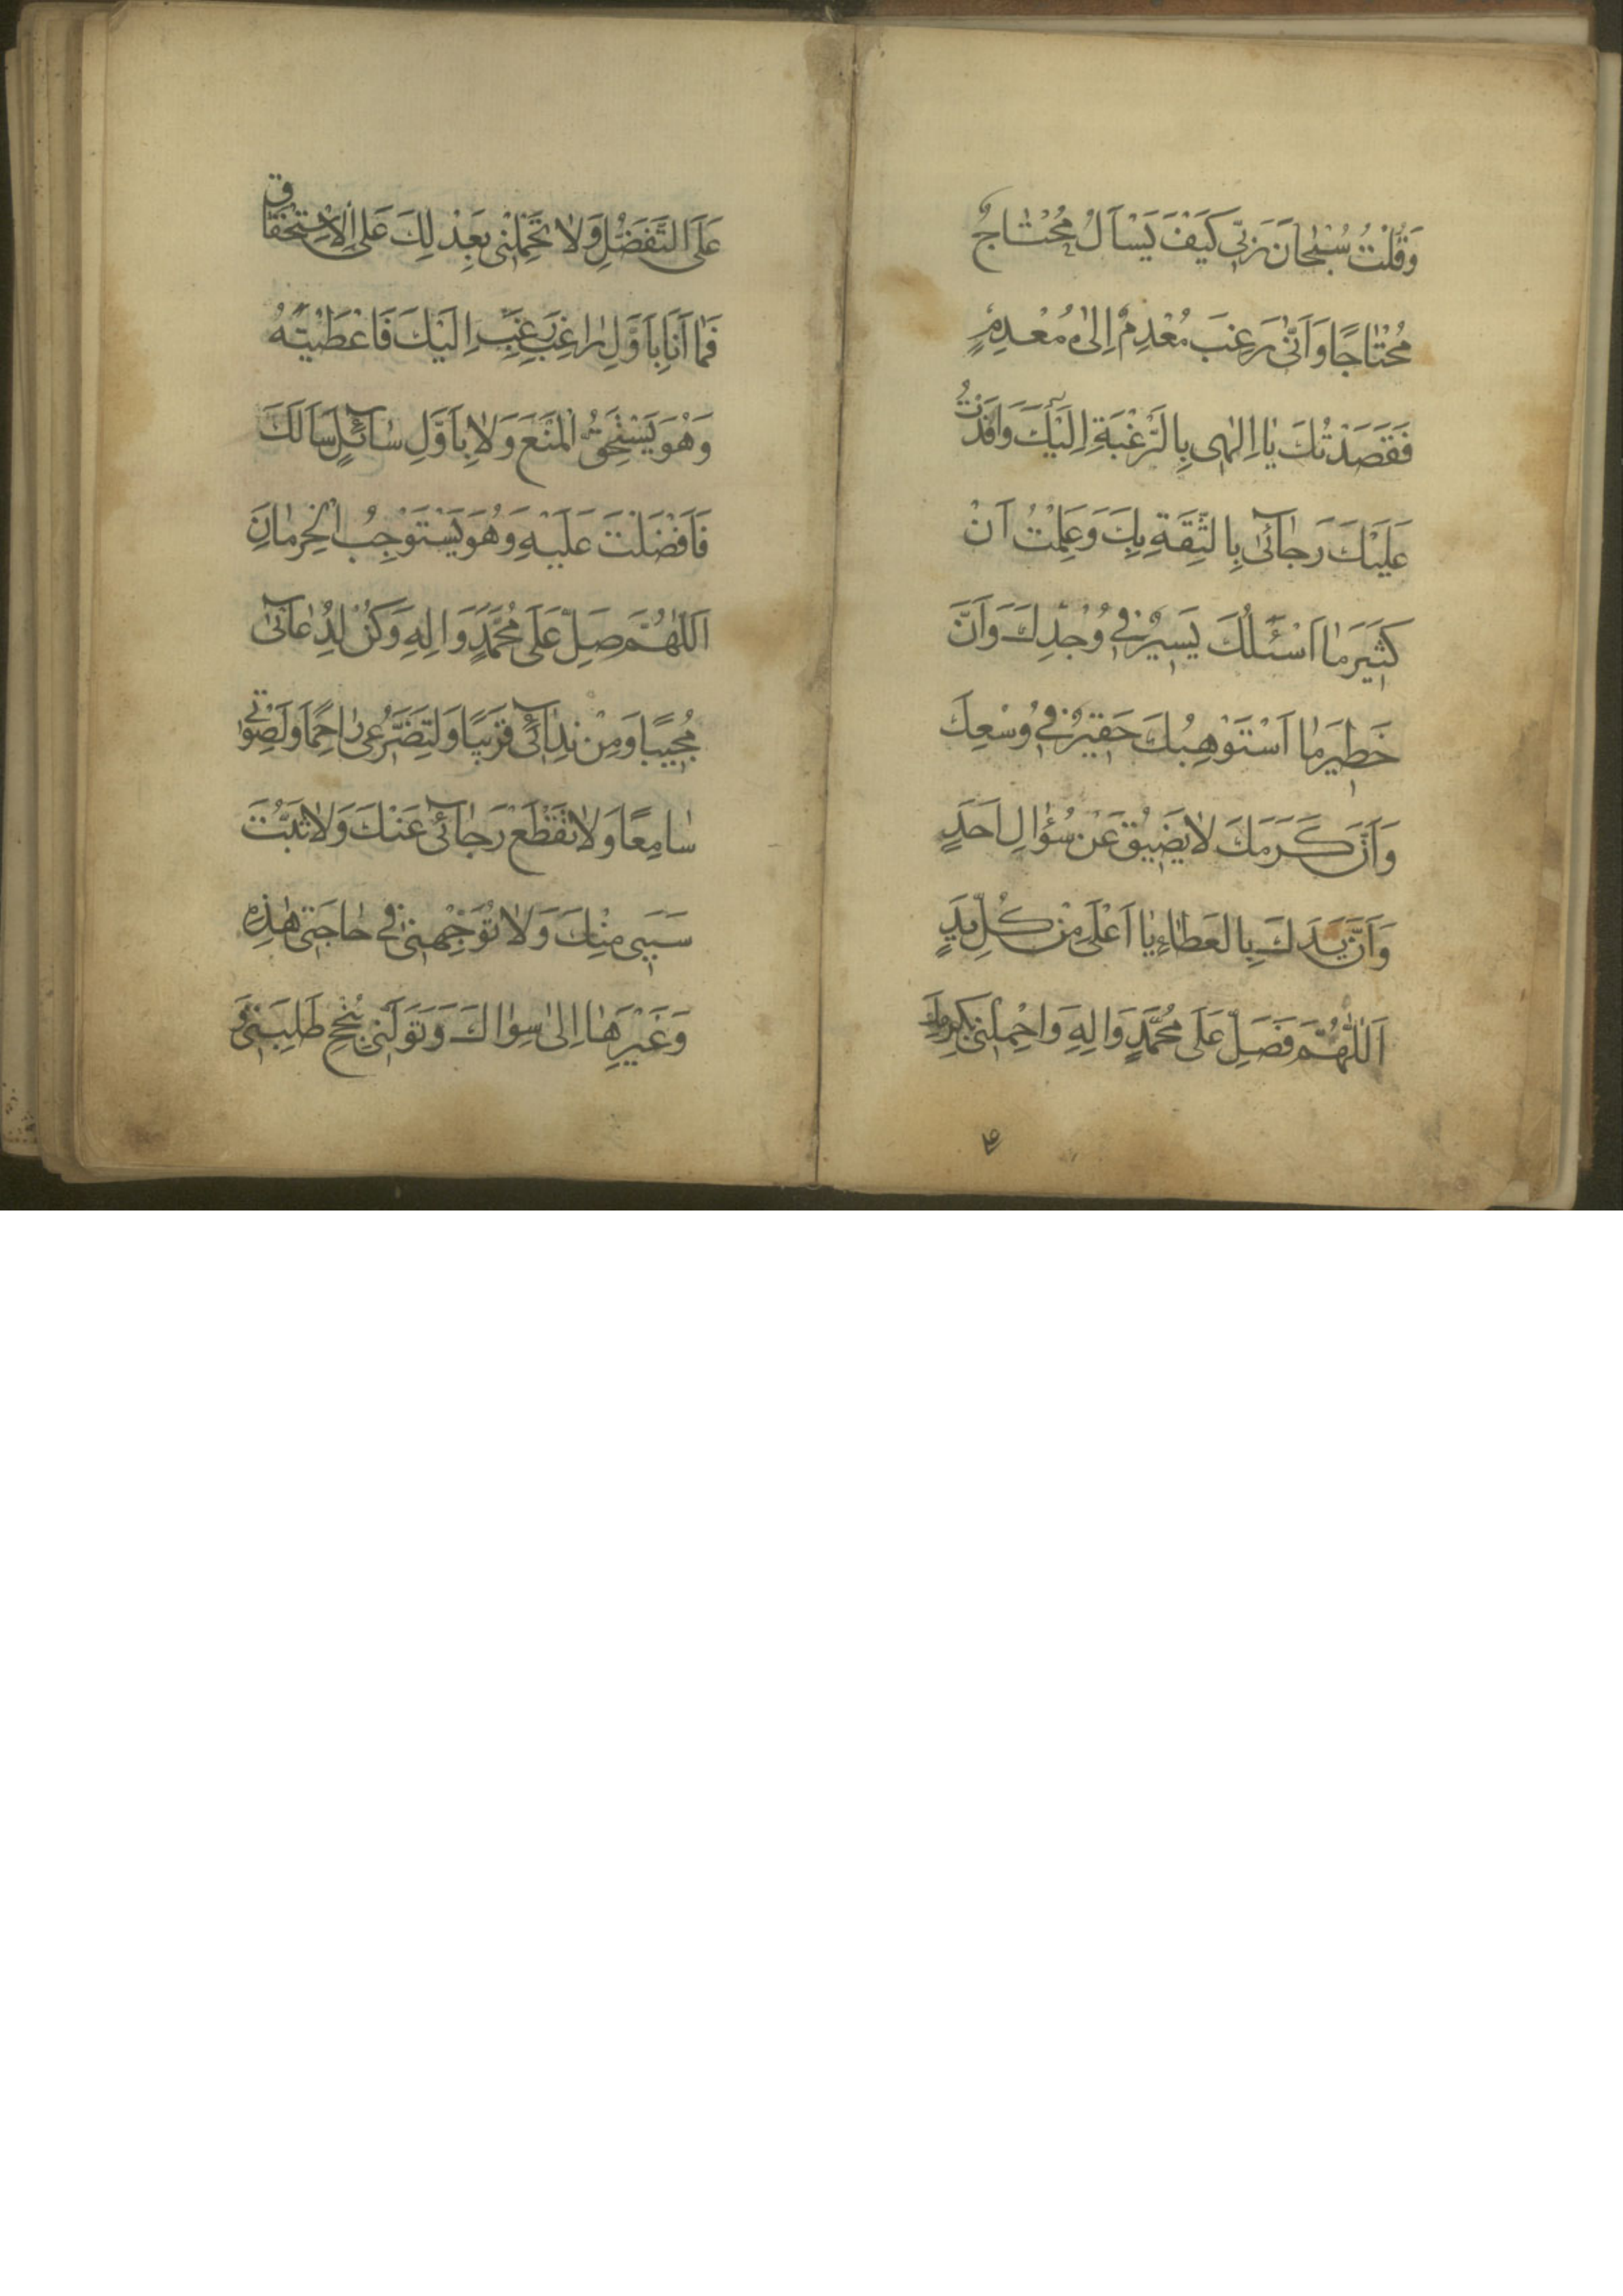 وَقُلْتُ سُبْحانَ رَبّى كَيْفَ يَسْاَلُ مُحْتاجٌ
مُحْتاجًا وَاَنّى رَغِبَ مُعْدِمٌ اِلى مُعْدِمٍ
فَقَصَدْتُكَ يا اِلهى بِالرَّغْبَةِ اِلَيْكَ وَاَفَدْتُ
عَلَيْكَ رَجآئى بِالثِّقَةِ بِكَ وَعَلِمْتُ اَنْ
كَثيرَ ما اَسْئَلُكَ يَسيرٌ فى وُجْدِكَ وَاَنَّ
خَطيرَ ما اَسْتَوْهِبُكَ حَقيرٌ فى وُسْعِكَ
وَاَنَّ كَرَمَكَ لا يَضيقُ عَنْ سُؤالِ اَحَدٍ
وَاَنَّ يَدَكَ بِالعَطاءِ يا اَعْلى مِنْ كُلِّ يَدٍ
اَللّهُمَّ فَصَلِّ عَلى مُحَمَّدٍ وَالِهِ وَاحْمِلْنى بِكَرَمِكَ
عَلَى التَّفَضُّلِ وَلا تَحْمِلْنى بِعَدْلِكَ عَلَى الاِسْتِحْقاق
فَما اَنَا بِاَوَّلِ راغِبٍ رَغِبَ اِلَيْكَ فَاَعْطَيْتَهُ
وَهُوَ يَسْتَحِقُّ الْمَنْعَ وَلا بِاَوَّلِ سآئِلٍ سَاَلَكَ
فَاَفْضَلْتَ عَلَيْهِ وَهُوَ يَسْتَوْجِبُ الْحِرْمانَ
اَللّهُمَّ صَلِّ عَلى مُحَمَّدٍ وَالِهِ وَكُنْ لِدُعآئى
مُجيبًا وَمِنْ نِدآئى قَريبًا وَلِتَضَرُّعى راحِمًا وَلِصَوْتى
سامِعًا وَلا تَقْطَعْ رَجآئى عَنْكَ وَلا تَبُتَّ
سَبَبى مِنْكَ وَلا تُوَجِّهْنى فى حاجَتى هذِهِ
وَغَيْرِها اِلى سِواكَ وَتَوَلَّنى بِنُجْحِ طَلِبَتى وَ